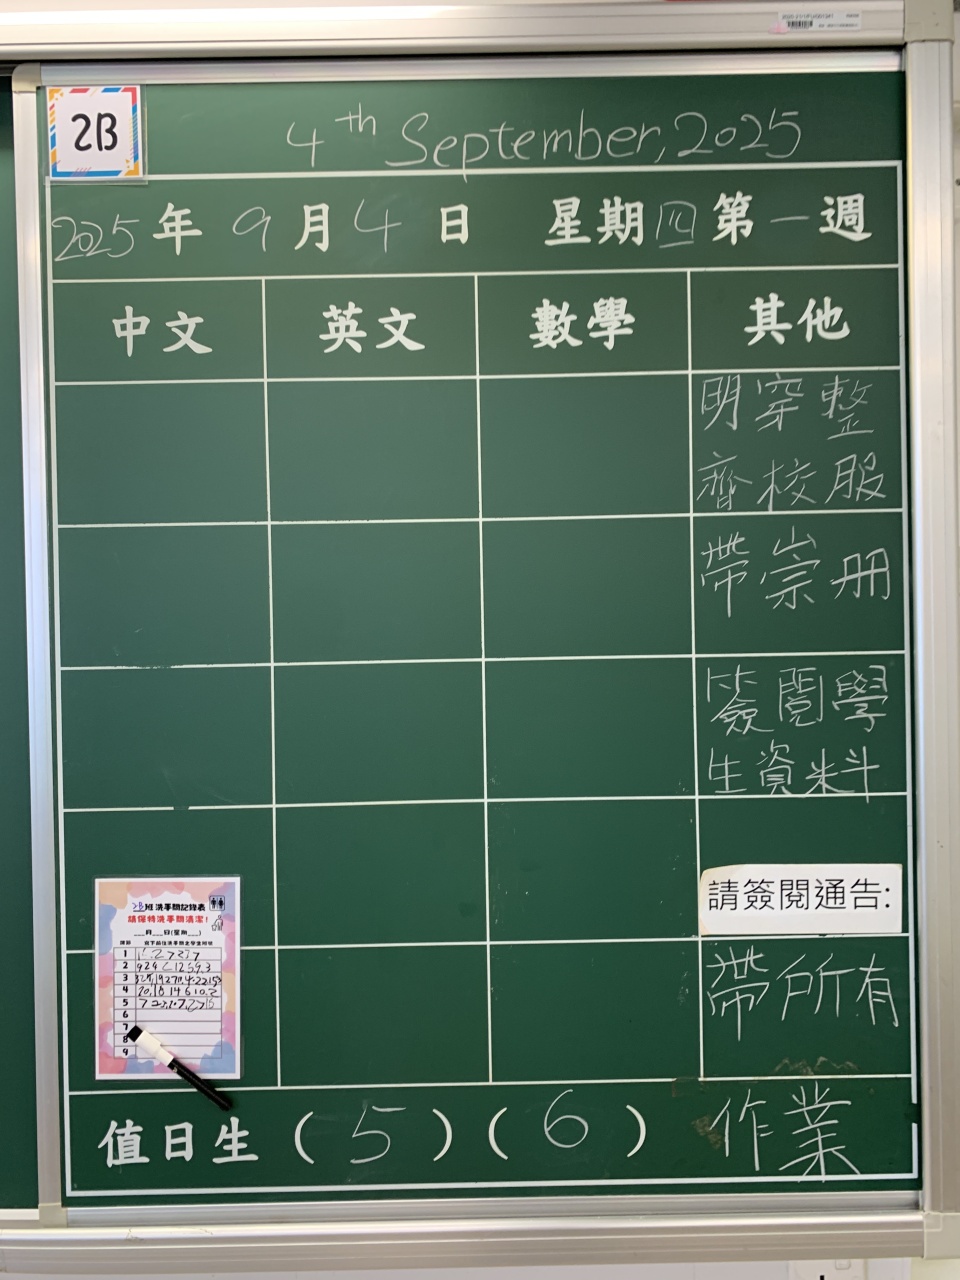 2B
4th September, 2025
2025年9月4日 星期四 第一週
中文 英文 數學 其他
明穿整
齊校服
帶崇册
簽閱學
生資料
請簽閱通告:
帶所有
作業
2B班洗手間記錄表
請保持洗手間清潔!
___月___日(星期___)
1
2
3
4
5
6
7
8
9
值日生 (5) (6)